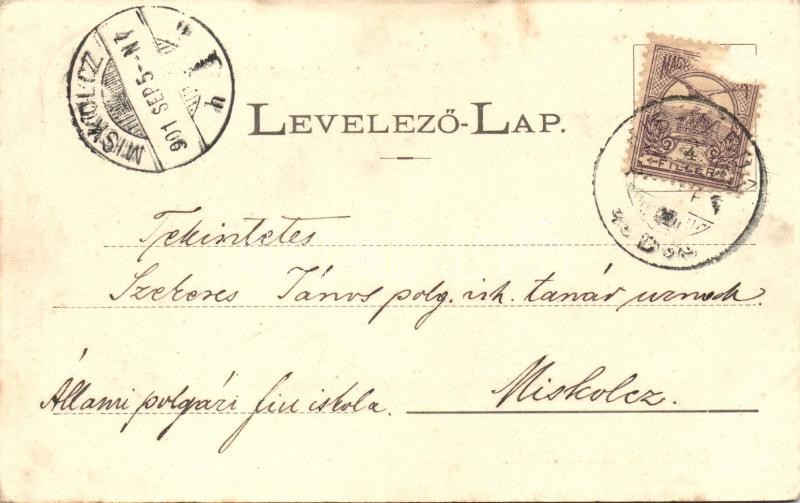 MISKOLCZ
901 SEP 5 N4
MAGY
4
FILLÉR
LEVELEZŐ-LAP.
Tekintetes
Szekeres János polg. isk. tanár urnak.
Állami polgári fiu iskola.
Miskolcz.